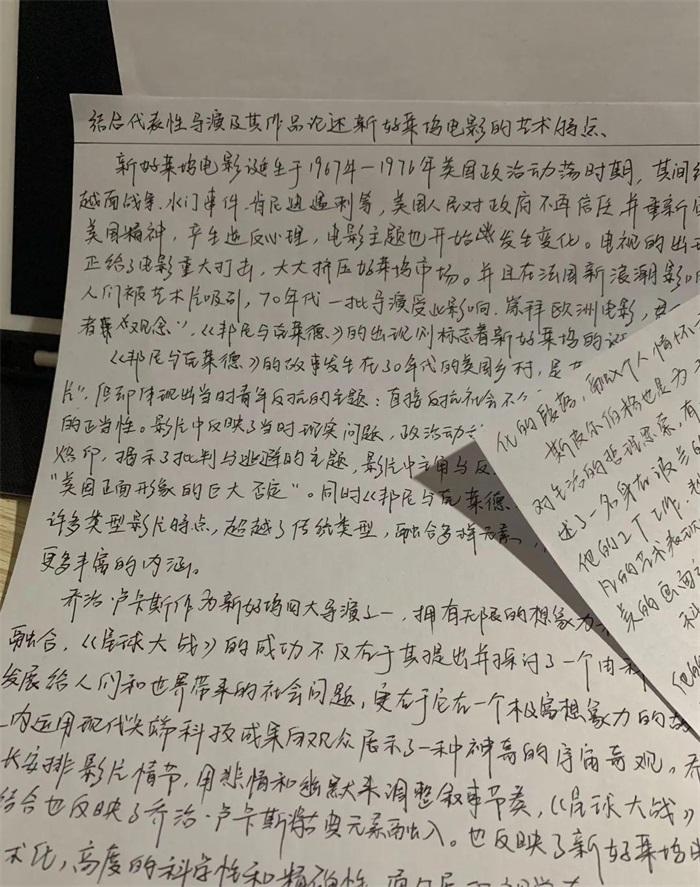 结合代表性导演及其作品论述新好莱坞电影的艺术特点、
新好莱坞电影诞生于1967年—1976年美国政治动荡时期，其间
越南战争、水门事件、肯尼迪遇刺等，美国人民对政府不再信任并重新
美国精神，产生造反心理，电影主题也开始发生变化。电视的出现
正给了电影重大打击，大大挤压好莱坞市场。并且在法国新浪潮影响
人们被艺术片吸引，70年代一批导演受此影响，崇拜欧洲电影，
者观念"，《邦尼与克莱德》的出现则标志着新好莱坞的
《邦尼与克莱德》的故事发生在30年代的美国乡村，是"
片"，但却体现出当时青年反抗的主题：直接反抗社会不
的正当性。影片中反映了当时现实问题，政治动
烙印，揭示了批判与逃避的主题，影片中主角与反
"美国正面形象的巨大否定"。同时《邦尼与克莱德
许多类型影片特点，超越了传统类型，融合多种元素，
更多丰富的内涵。
乔治·卢卡斯作为新好坞四大导演之一，拥有无限的想象力
融合，《星球大战》的成功不仅在于其提出并探讨了一个由科
发展给人们和世界带来的社会问题，更在于它在一个极富想象力的故
内运用现代尖端科技成果向观众展示了一种神奇的宇宙奇观。乔
长安排影片情节，用悲情和幽默来调整叙事节奏，《星球大战》
结合也反映了乔治·卢卡斯将元素融入。也反映了新好莱坞
术化，高度的科学性和精确性
化的段落，而以个人情怀
斯皮尔伯格也是为
对生活的哲理思索，有
述了一名身在波兰的
他的工厂工作，
片的艺术表现
美的画面
科
他的